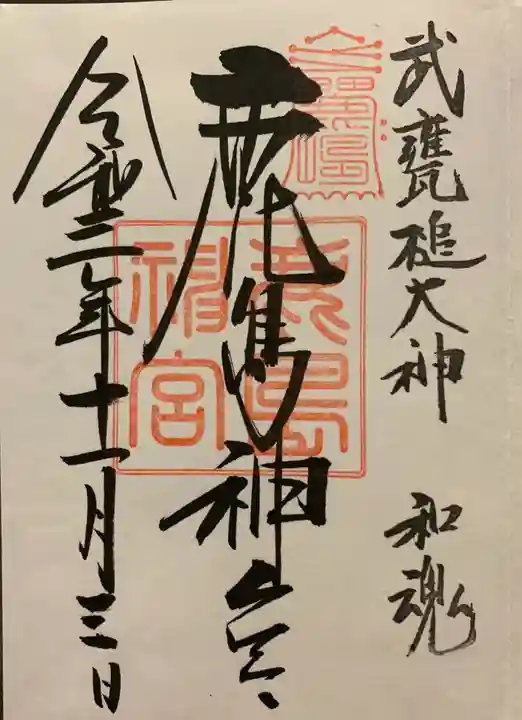 武甕槌大神 和魂
鹿島神宮
令和二年十一月三日
鹿島
神宮